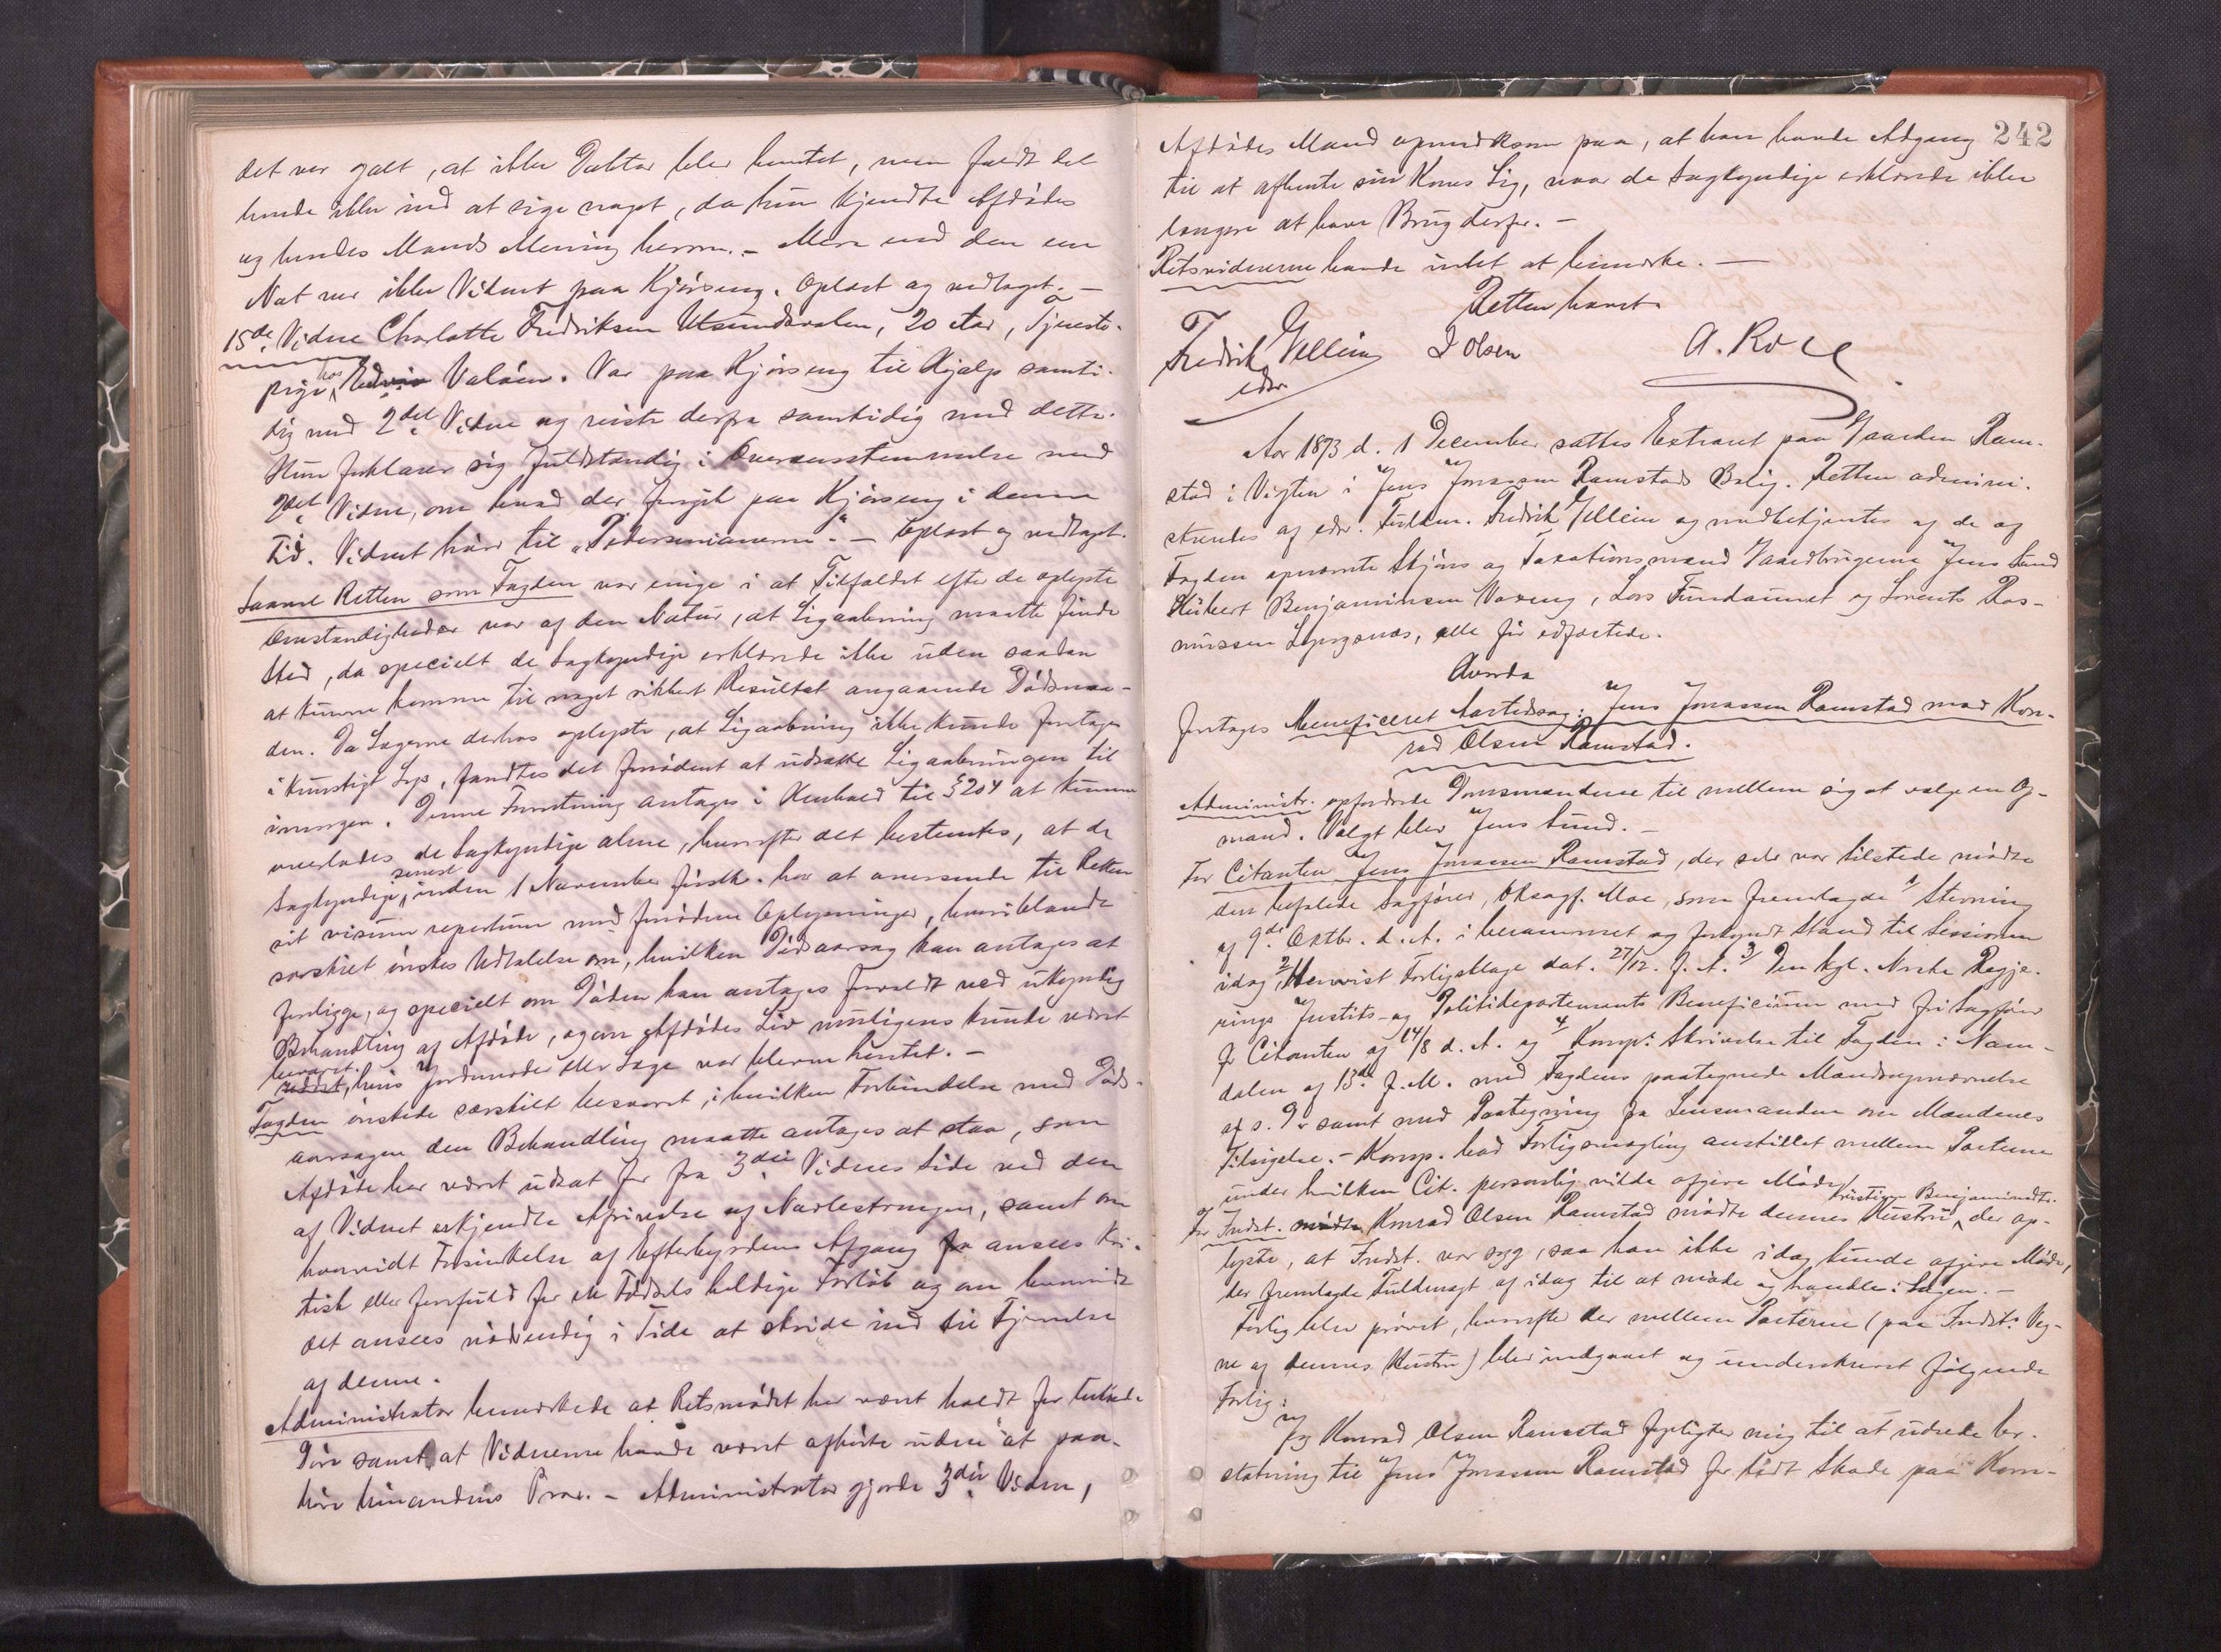 det var galt, at ikke Doktor blev hentet, men faldt det
hende ikke ind at sige noget, da hun kjendte Afdødes
og hendes Mands Mening herom. - Mere end den ene
Nat var ikke Vidnet paa Kjørseng. Oplæst og vedtaget. -
15de Vidne Charlotte Fredriksen, 20 Aar, Tjeneste-
pige hos Valøen. Var paa Kjørseng til Hjælp samti-
dig med 2det Vidne og reiste derfra samtidig med dette.
Hun forklarer sig fuldstændig i Overensstemmelse med
2det Vidne, om hvad der foregik paa Kjørseng i denne
Tid. Vidnet hører til "Pedersenianerne". - Oplæst og vedtaget.
Saavel Retten som Fogden var enige i at Tilfældet efter de oplyste
Omstændigheder var af den Natur, at Ligaabning maatte finde
Sted, da specielt de Sagkyndige erklærede ikke uden saadan
at kunne komme til noget sikkert Resultat angaaende Dødsmaa-
den. Da Lægerne derhos oplyste, at Ligaabning ikke kunde foretages
i kunstigt Lys, fandtes det fornødent at udsætte Ligaabningen til
imorgen. Denne Forretning antages i Henhold til § 204 at kunne
overlades de Sagkyndige alene, hvorefter det bestemtes, at de
Sagkyndige senest inden 1 November førstk. har at oversende til Retten
sit visum repertum med fornødne Oplysninger, hvoriblandt
særskilt ønskes Udtalelse om, hvilken Dødsaarsag kan antages at
foreligge, og specielt om Døden kan antages forvoldt ved ukyndig
Behandling af Afdøde, og om Afdødes Liv muligens kunde været
bevaret, hvis Jordmoder eller Læge var bleven hentet. -
Fogden ønskede særskilt besvaret, i hvilken Forbindelse med Døds-
aarsagen den Behandling maatte antages at staa, som
Afdøde har været udsat for fra 3die Vidnes Side ved den
af Vidnet erkjendte Afrivelse af Navlestrengen, samt om
hvorvidt Forsinkelse af Efterbyrdens Afgang ansees kri-
tisk eller farefuld for en Fødsels heldige Forløb og om hvorvidt
det ansees nødvendig i Tide at skride ind til Fjernelse
af denne.
Administrator bemærkede at Retsmødet har været holdt for lukkede
Døre samt at Vidnerne havde været afhørte uden at paa-
høre hinandens Prov. - Administrator gjorde 3die Vidne,
242
Afdødes Mand opmærksom paa, at han havde Adgang
til at afhente sin Kones Lig, naar de Sagkyndige erklærede ikke
længere at have Brug derfor. -
Retsvidnerne havde intet at bemærke. -
Retten hævet.
Fredrik Gellein J Olsen A. Roll
edsv
Aar 1893 d. 1 December sattes Extraret paa Gaarden Ram-
stad i Vigten i Jens Jonassen Ramstads Bolig. Retten admini-
streredes af edsv. Fuldm. Fredrik Gellein og medbetjentes af de af
Fogden opnævnte Skjøns og Taxationsmænd Gaardbrugerne Jens Sund
Hubert Benjaminsen Vaxeng, Lars Fundaunet og Lorents Ras-
mussen, alle før edfæstede.
Hvorda
foretages Beneficeret Aastedssag: Jens Jonassen Ramstad mod Kon-
rad Olsen Ramstad.
Administr. opfordrede Domsmændene til mellem sig at vælge en Op-
mand. Valgt blev Jens Sund. -
For Citanten Jens Jonassen Ramstad, der selv var tilstede mødte
den befalede Sagfører, Oksagf. Moe, som fremlagde 1 Stevning
af 9de Oktbr. d. A. i berammet og forkyndt Stand til Sessionen
idag, 2 Henvist Forligsklage dat. 27/12. f. A. 3 Den kgl. Norske Regje-
rings Justits- og Politidepartements Beneficium med fri Sagfører
for Citanten af 14/8 d. A. og 4 Komp: Skrivelse til Fogden i Nam-
dalen af 13de f. M. med Fogdens paategnede Mændsopnævnelse
af s. D. samt med Paategning fra Lensmanden om Mændenes
Tilsigelse. - Komp. bad Forligsmægling anstillet mellem Parterne
under hvilken Cit. personlig vilde afgive Møde.
For Indst. Konrad Olsen Ramstad mødte dennes Hustru Kristiane Benjaminsdtr. der op-
lyste, at Indst. var syg, saa han ikke idag kunde afgive Møde,
der fremlagde Fuldmagt af idag til at møde og handle i Sagen. -
Forlig blev prøvet, hvorefter der mellem Parterne (paa Indst: Veg-
ne af dennes Hustru) blev indgaaet og underskrevet følgende
Forlig:
Jeg Konrad Olsen Ramstad forpligter mig til at udrede Er-
statning til Jens Jonassen Ramstad for lidt Skade paa Korn-